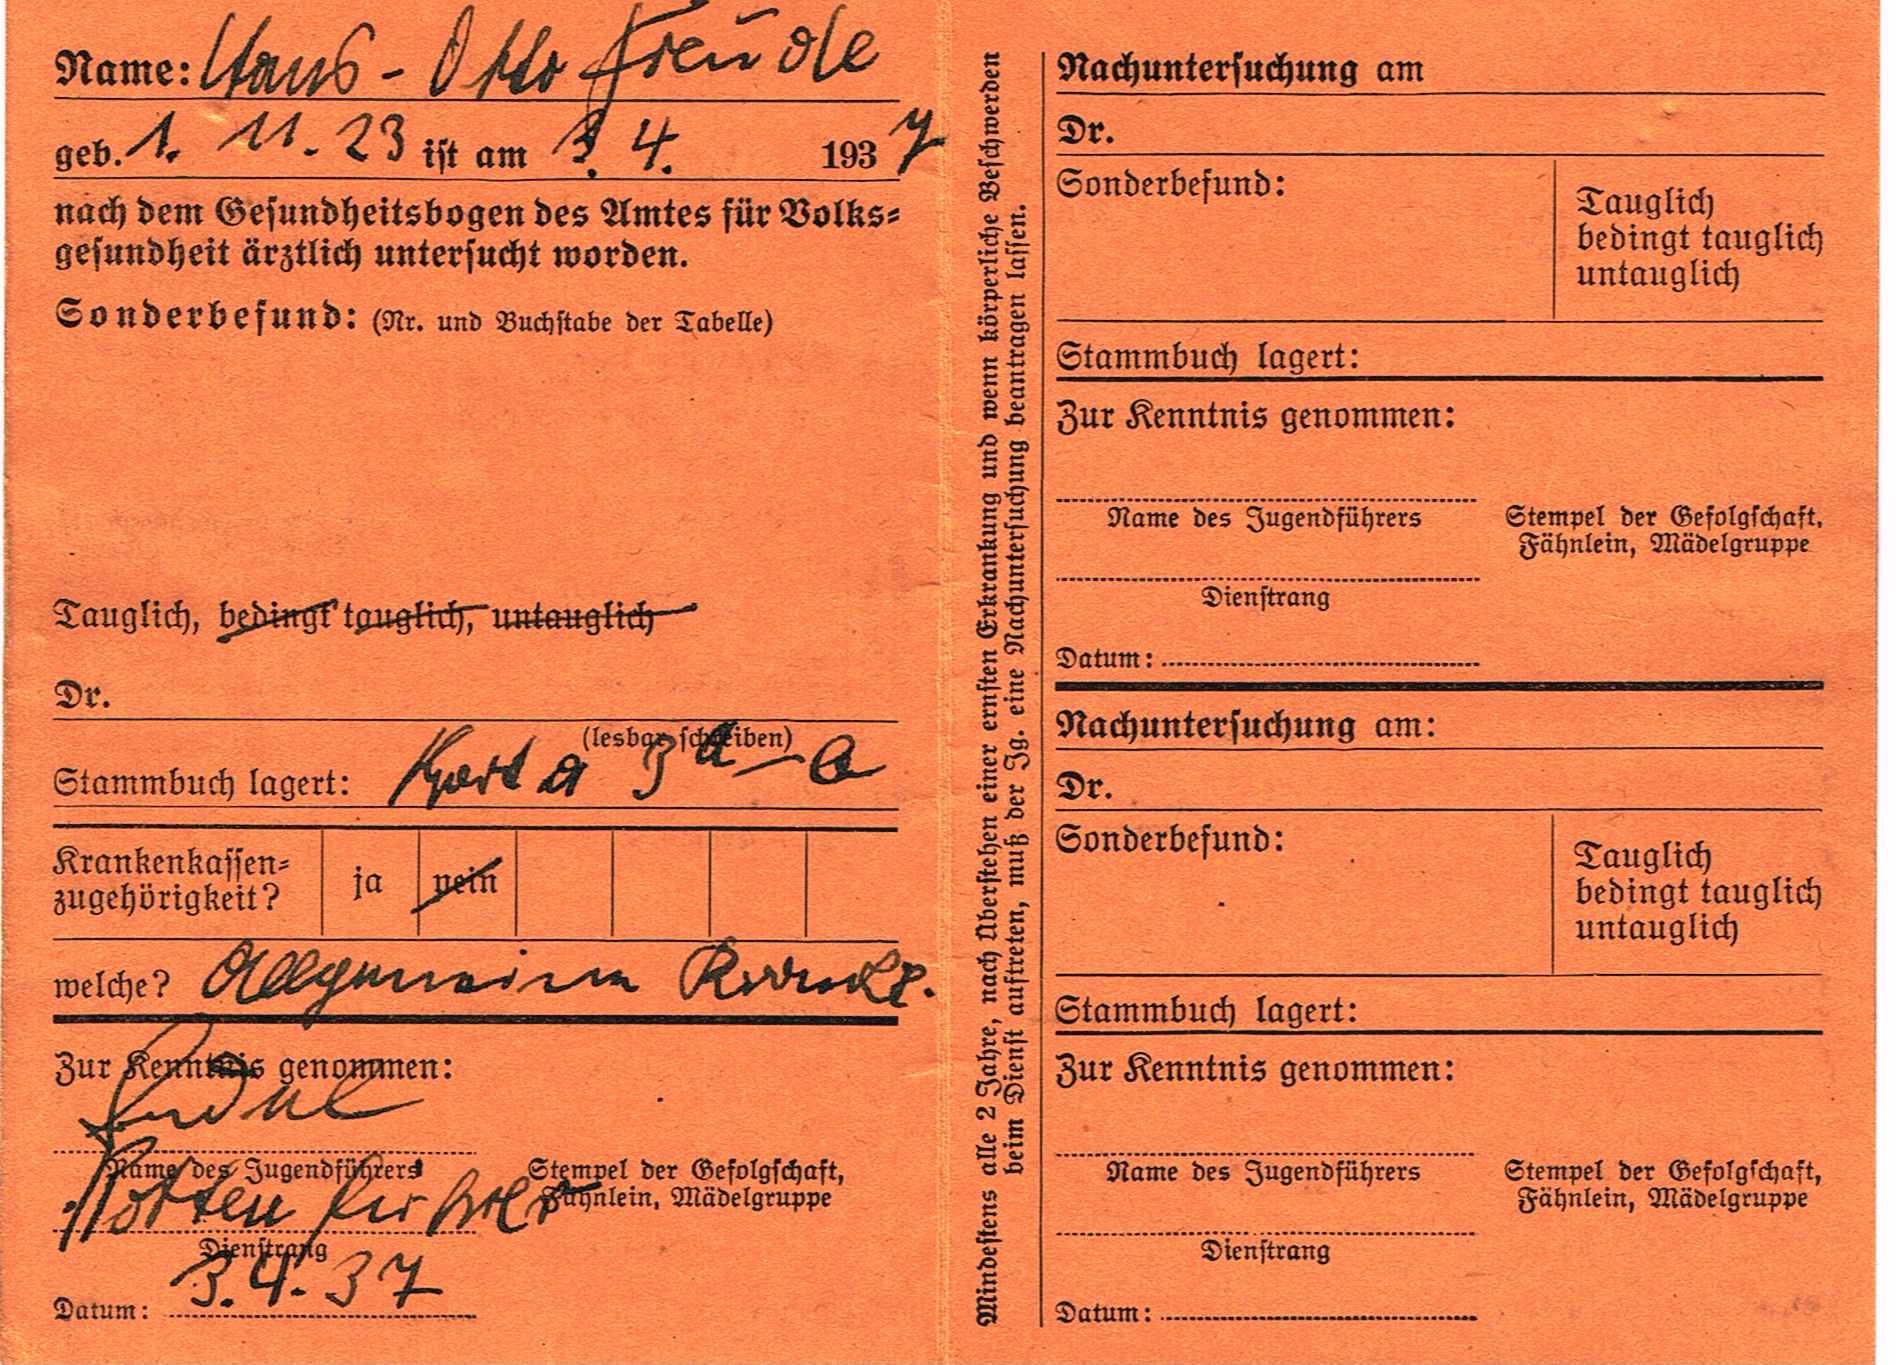 Name: Hans-Otto Freudle
geb. 1. 11. 23 ist am 3. 4. 1937
nach dem Gesundheitsbogen des Amtes für Volks-
gesundheit ärztlich untersucht worden.
Sonderbefund: (Nr. und Buchstabe der Tabelle)
Tauglich, bedingt tauglich, untauglich
Dr.
(lesbar schreiben)
Stammbuch lagert: 3
Krankenkassen-
zugehörigkeit? ja nein
welche? Allgemeine
Zur Kenntnis genommen:
Name des Jugendführers
Stempel der Gefolgschaft,
Fähnlein, Mädelgruppe
Rottenführer
Dienstrang
Datum: 3.4.37
Mindestens alle 2 Jahre, nach Überstehen einer ernsten Erkrankung und wenn körperliche Beschwerden
beim Dienst auftreten, muß der Jg. eine Nachuntersuchung beantragen lassen.
Nachuntersuchung am
Dr.
Sonderbefund:
Tauglich
bedingt tauglich
untauglich
Stammbuch lagert:
Zur Kenntnis genommen:
Name des Jugendführers
Stempel der Gefolgschaft,
Fähnlein, Mädelgruppe
Dienstrang
Datum:
Nachuntersuchung am:
Dr.
Sonderbefund:
Tauglich
bedingt tauglich
untauglich
Stammbuch lagert:
Zur Kenntnis genommen:
Name des Jugendführers
Stempel der Gefolgschaft,
Fähnlein, Mädelgruppe
Dienstrang
Datum: